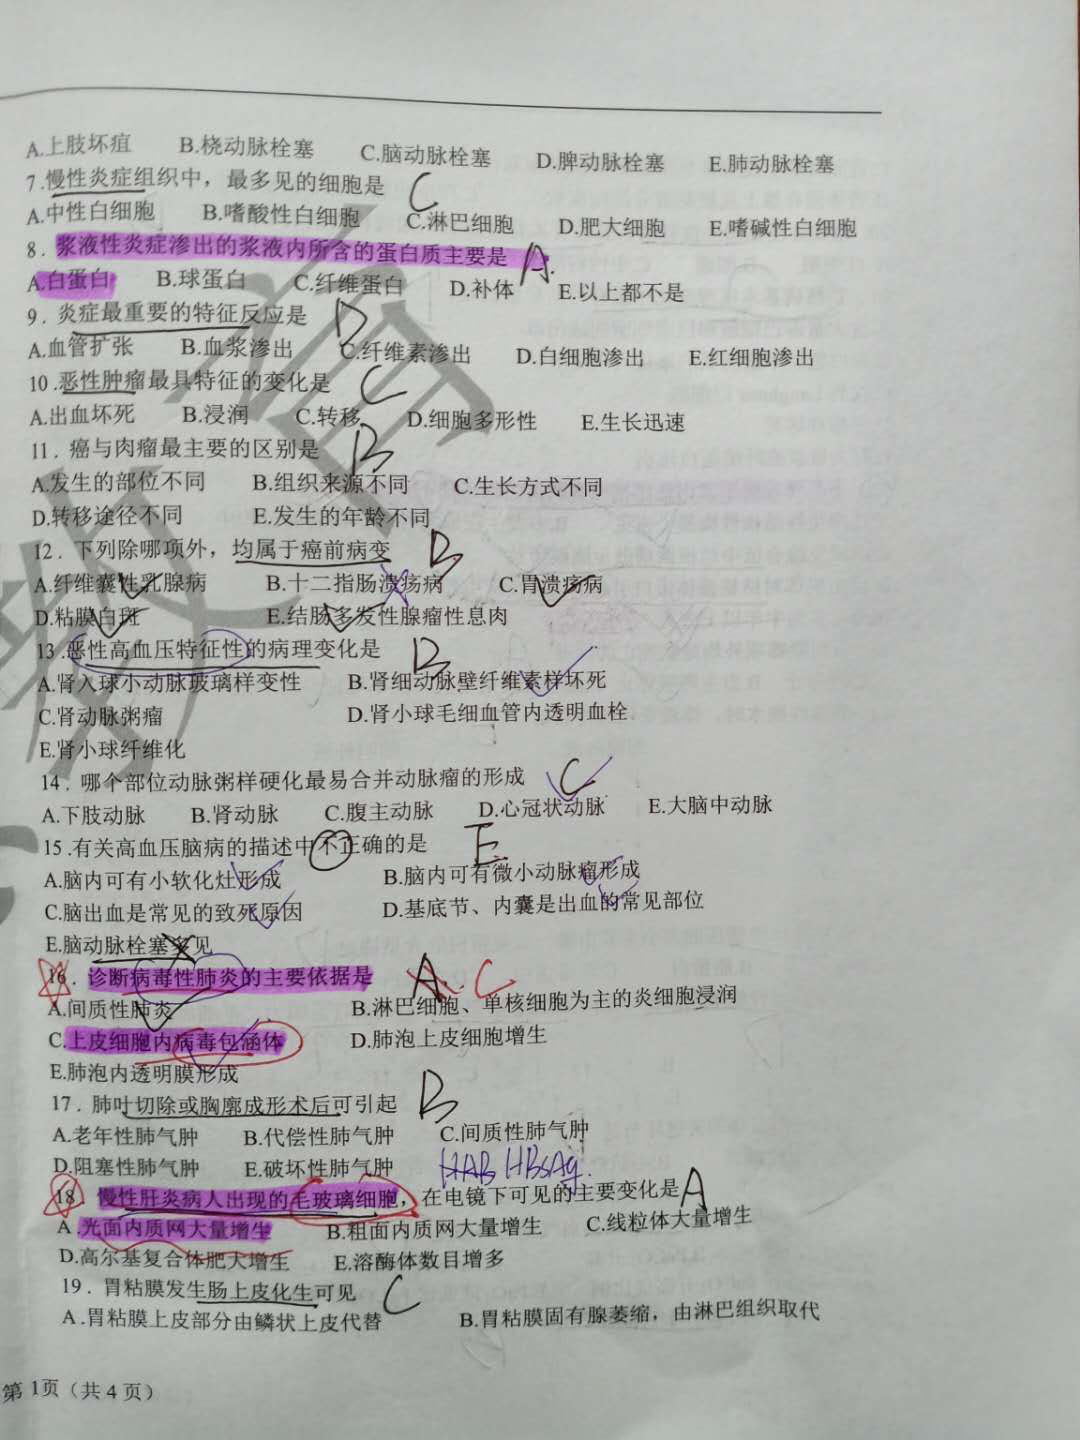 A.上肢坏疽 B.桡动脉栓塞 C.脑动脉栓塞 D.脾动脉栓塞 E.肺动脉栓塞
7.慢性炎症组织中，最多见的细胞是 C
A.中性白细胞 B.嗜酸性白细胞 C.淋巴细胞 D.肥大细胞 E.嗜碱性白细胞
8.浆液性炎症渗出的浆液内所含的蛋白质主要是 A.
A.白蛋白 B.球蛋白 C.纤维蛋白 D.补体 E.以上都不是
9.炎症最重要的特征反应是 D
A.血管扩张 B.血浆渗出 C.纤维素渗出 D.白细胞渗出 E.红细胞渗出
10.恶性肿瘤最具特征的变化是 C
A.出血坏死 B.浸润 C.转移 D.细胞多形性 E.生长迅速
11.癌与肉瘤最主要的区别是 B
A.发生的部位不同 B.组织来源不同 C.生长方式不同
D.转移途径不同 E.发生的年龄不同
12.下列除哪项外，均属于癌前病变 B
A.纤维囊性乳腺病 B.十二指肠溃疡病 C.胃溃疡病
D.粘膜白斑 E.结肠多发性腺瘤性息肉
13.恶性高血压特征性的病理变化是 B
A.肾入球小动脉玻璃样变性 B.肾细动脉壁纤维素样坏死
C.肾动脉粥瘤 D.肾小球毛细血管内透明血栓
E.肾小球纤维化
14.哪个部位动脉粥样硬化最易合并动脉瘤的形成 C
A.下肢动脉 B.肾动脉 C.腹主动脉 D.心冠状动脉 E.大脑中动脉
15.有关高血压脑病的描述中不正确的是 E
A.脑内可有小软化灶形成 B.脑内可有微小动脉瘤形成
C.脑出血是常见的致死原因 D.基底节、内囊是出血的常见部位
E.脑动脉栓塞多见
16.诊断病毒性肺炎的主要依据是 A C
A.间质性肺炎 B.淋巴细胞、单核细胞为主的炎细胞浸润
C.上皮细胞内病毒包涵体 D.肺泡上皮细胞增生
E.肺泡内透明膜形成
17.肺叶切除或胸廓成形术后可引起 B
A.老年性肺气肿 B.代偿性肺气肿 C.间质性肺气肿
D.阻塞性肺气肿 E.破坏性肺气肿 HAB HBsAg.
18.慢性肝炎病人出现的毛玻璃细胞，在电镜下可见的主要变化是 A
A.光面内质网大量增生 B.粗面内质网大量增生 C.线粒体大量增生
D.高尔基复合体肥大增生 E.溶酶体数目增多
19.胃粘膜发生肠上皮化生可见 C
A.胃粘膜上皮部分由鳞状上皮代替 B.胃粘膜固有腺萎缩，由淋巴组织取代
第1页（共4页）